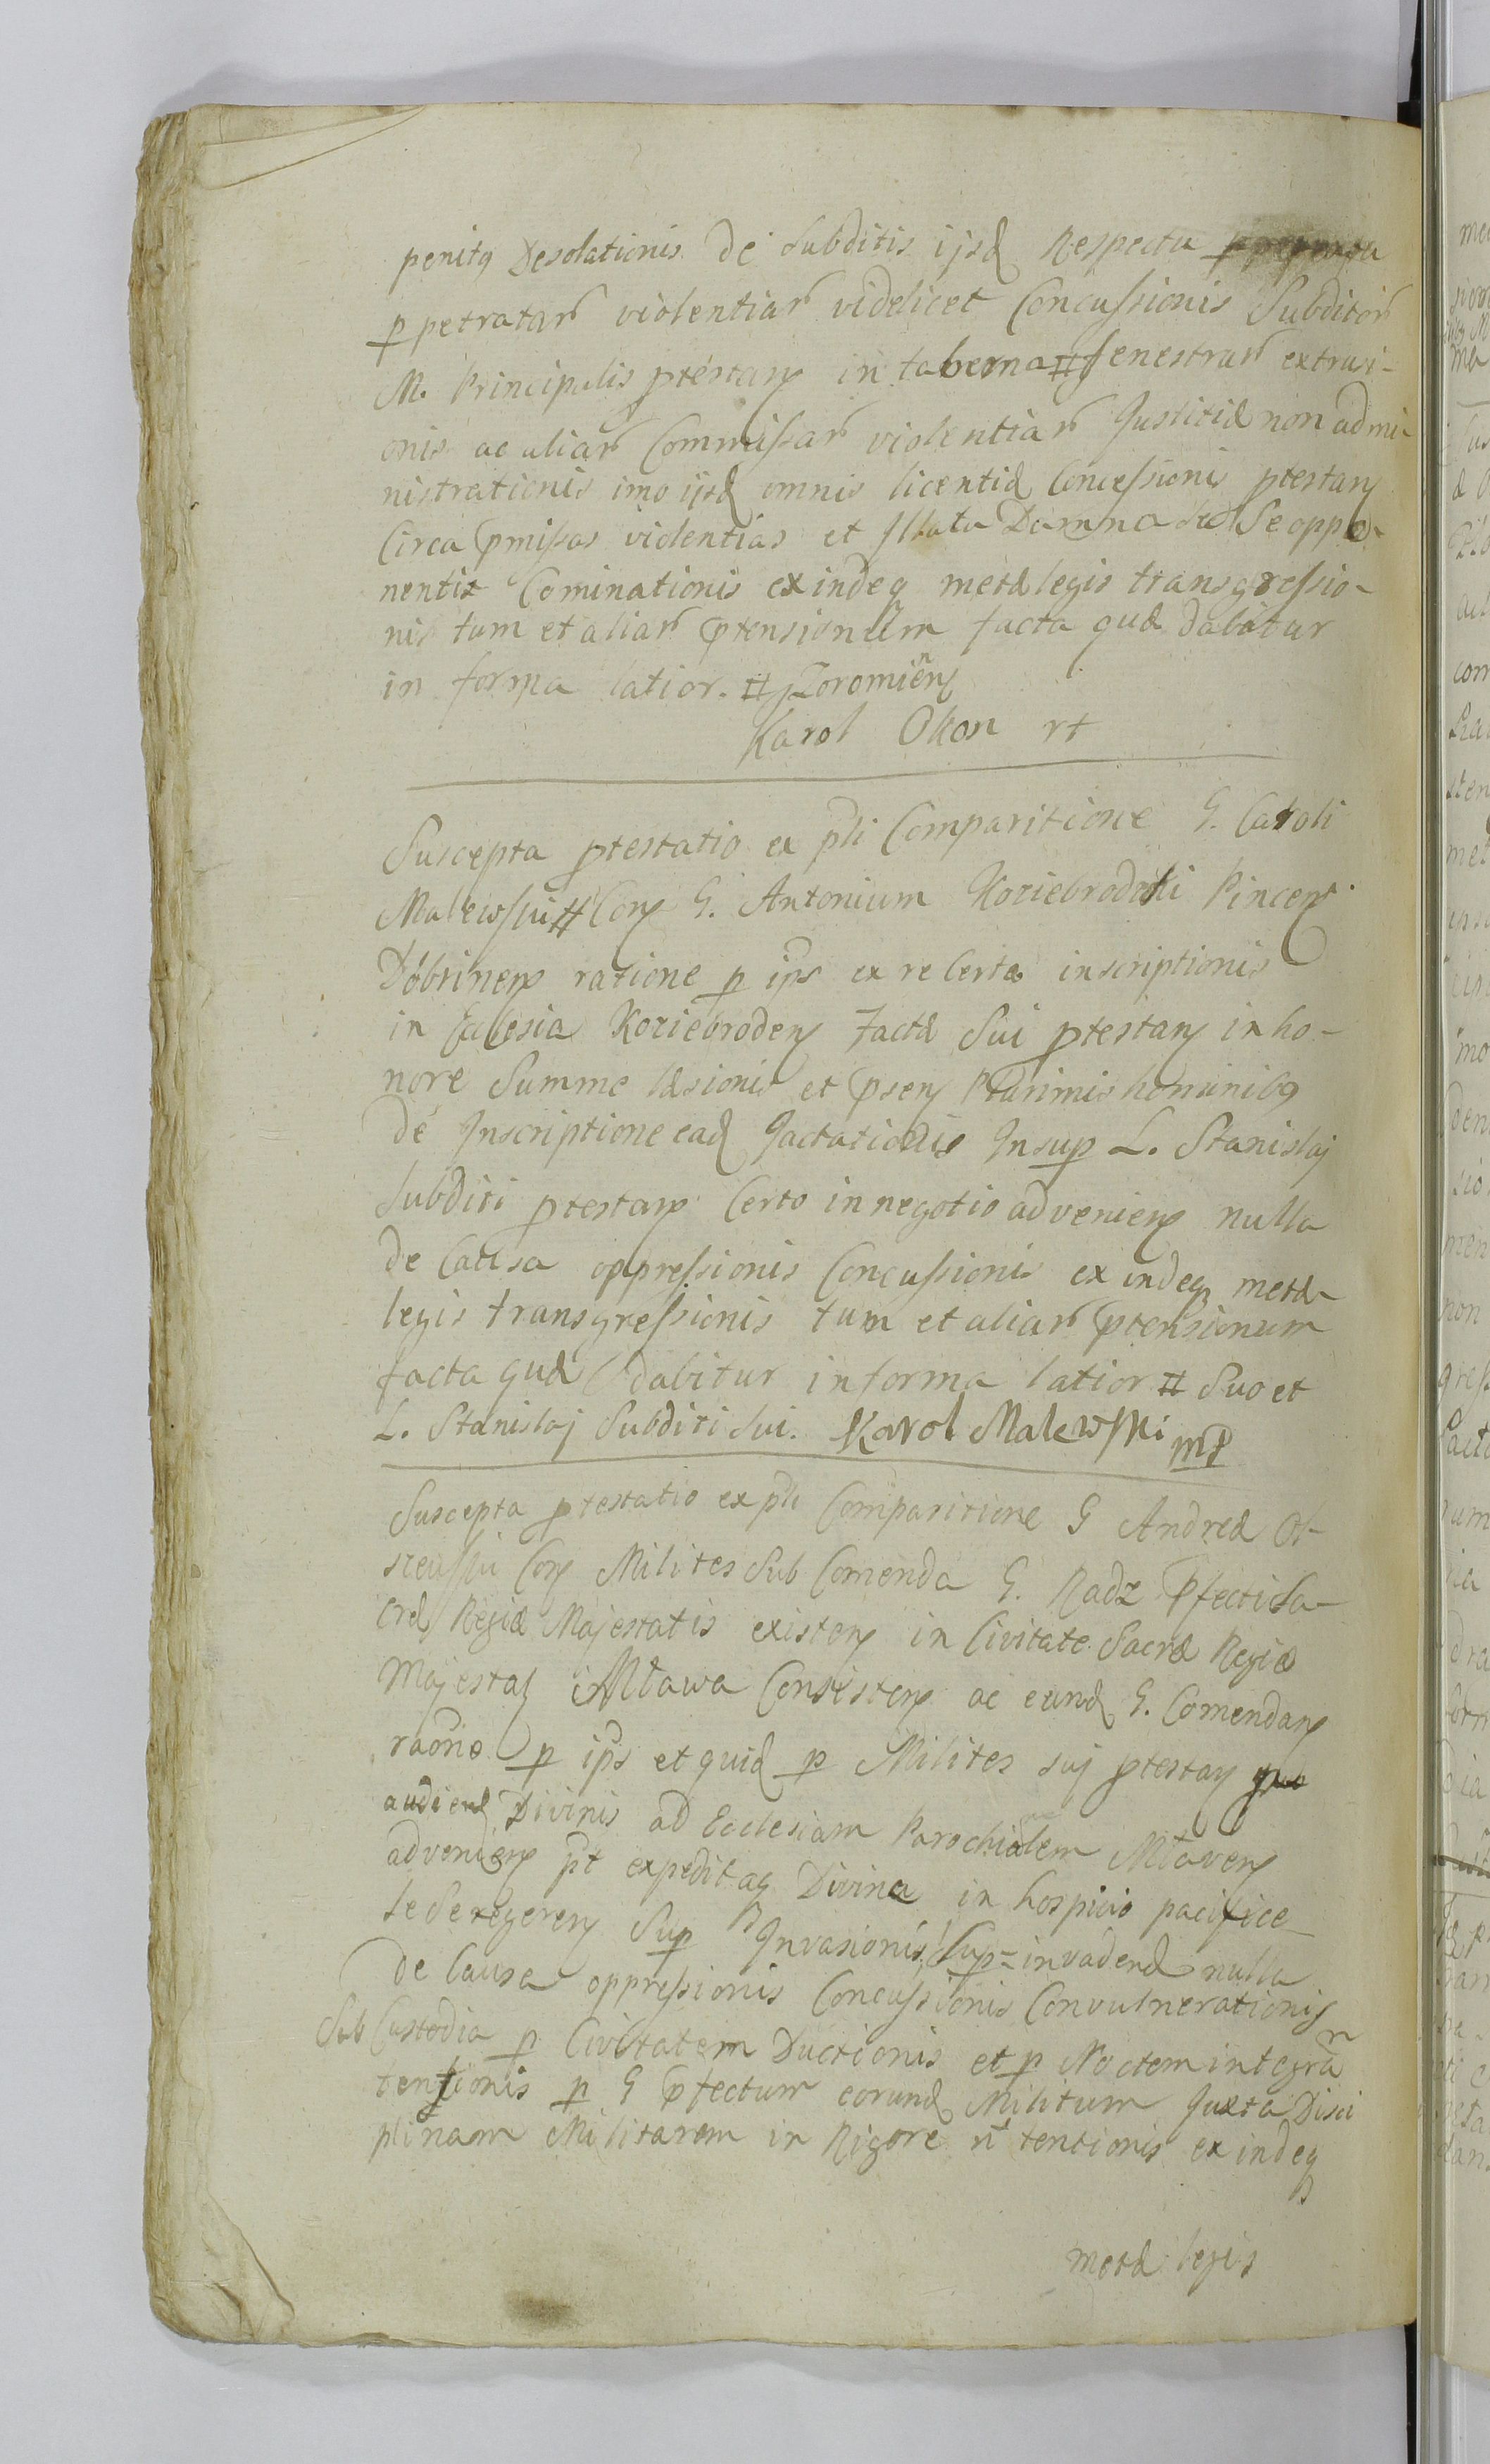 penitq Desolationis de Subditis ijsd Respectu
p petratar violentiar videlicet Concussionis Subditor
M. Principalis ptestany in taberna # fenestrar extrusi-
onis ac aliar Commissar violentiar Justitiæ non admi-
nistrationis imo ijsd omnis licentiæ Concessionis ptestany
Circa pmissas violentias et Illata Damna se oppo-
nentis Cominationis exindeq metæ legis transgressio-
nis tum et aliar ptensionum facta quæ dabitur
in forma latior. # Zoromien
Karol Okon rt
Suscepta ptestatio ex pli Comparitione G. Caroli
Malewski # Con G. Antonium Koziebrodzki Pincer.
Dobrinen ratione p ips ex re Certæ inscriptionis
in Eclesia Koziebroden factæ Sui ptestan in ho-
nore Summe læsionis et psen Plurimis hominibq
de Inscriptione ead Jactationis Insup L. Stanislaj
Subditi ptestan Certo in negotio advenien nulla
de Causa oppressionis Concussionis exindeq metæ
legis transgressionis tum et aliar ptensionum
facta quæ dabitur in forma latior # Suo et
L. Stanislaj Subditi Sui. Karol Malewski mp
Suscepta ptestatio ex pli Comparitione G Andreæ
Con Milites Sub Comenda G. Radz Pfecti Sa-
cræ Regiæ Majestatis existen in Civitate Sacræ Regiæ
Majestat Mławа Consisten ac eund G. Comendan
raone p ips et quid p Milites suj ptestan
audiend Divinis ad Ecclesiam Parochialem Młaven
advenien pt expeditaq Divina in hospicio pacifice
se Seregeren Sup Invasionis Sup=invadend nulla
de Causa oppressionis Concussionis Convulnerationis
Sub Custodia p Civitatem Ductionis et p Noctem integra
tentionis p G pfectum eorund Militum Juxta Disci
plinam Militarem in Rigore nt tentionis exindeq
metæ legis